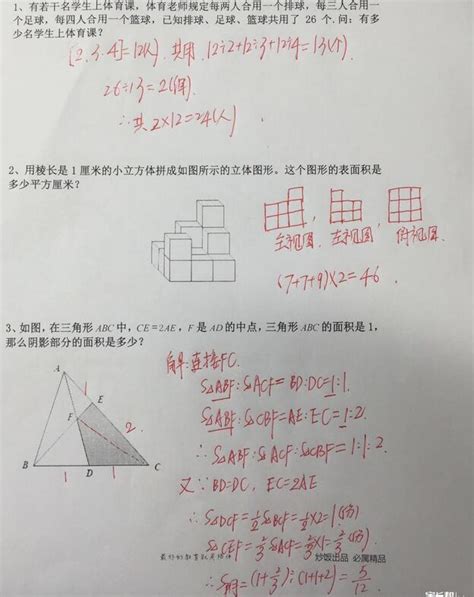 1、有若干名学生上体育课，体育老师规定每两人合用一个排球，每三人合用一
个足球，每四人合用一个篮球，已知排球、足球、篮球共用了 26 个.问：有多
少名学生上体育课？
[2、3、4]=12(人) 共用 12÷2+12÷3+12÷4=13(个)
26÷13=2(倍)
∴共 2×12=24(人)
2、用棱长是 1 厘米的小立方体拼成如图所示的立体图形。这个图形的表面积是
多少平方厘米？
主视图、左视图、俯视图
(7+7+9)×2=46
3、如图，在三角形 ABC 中，CE=2AE，F 是 AD 的中点，三角形 ABC 的面积是 1，
那么阴影部分的面积是多少？
A
1
E
F
2
B
1
D
1
C
解:连接FC.
S△ABF:S△ACF=BD:DC=1:1.
S△ABF:S△CBF=AE:EC=1:2.
∴S△ABF:S△ACF:S△CBF=1:1:2.
又∵BD=DC, EC=2AE
∴S△DCF=1/2 S△BCF=1/2×2=1(份)
S△CEF=2/3 S△ACF=2/3×1=2/3(份)
妙饭出品 必属精品
∴S阴=(1+2/3)÷(1+1+2)=5/12.